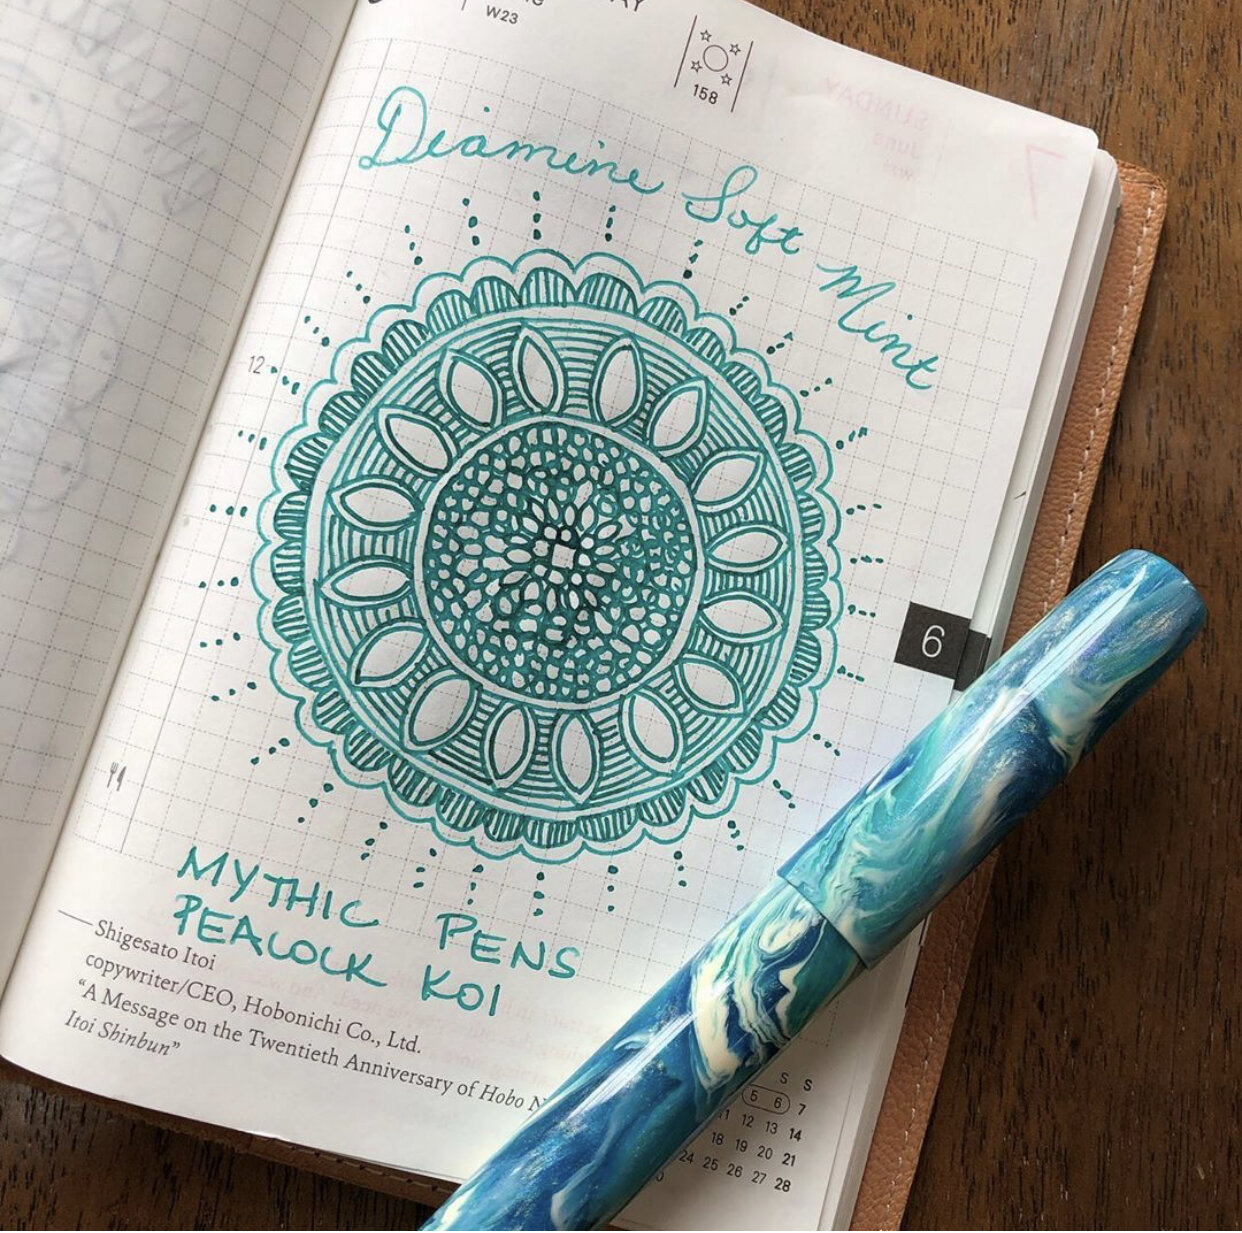 W23
158
Diamine Soft Mint
12
6
MYTHIC PENS
PEACOCK KOI
Shigesato Itoi
copywriter/CEO, Hobonichi Co., Ltd.
“A Message on the Twentieth Anniversary of Hobo
Itoi Shinbun”
S S
5 6 7
12 13 14
18 19 20 21
24 25 26 27 28
SUNDAY
June
7